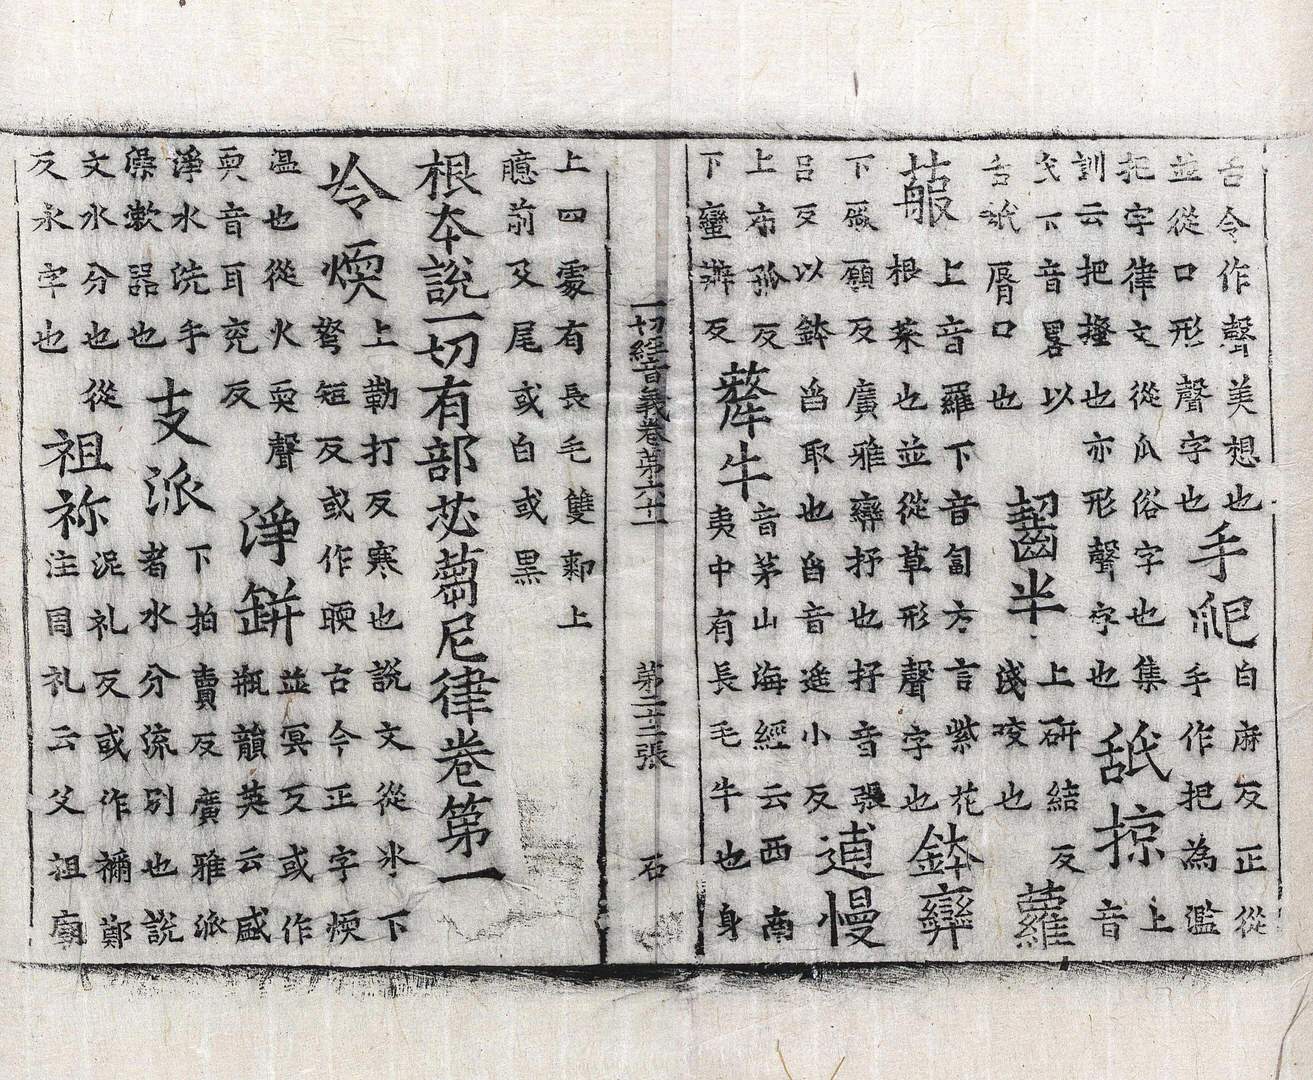 舌令作聲美想也
並從口形聲字也
手爬
白麻反正從
手作把為濫
把字律文從瓜俗字也集
訓云把搔也亦形聲字也
舐掠
上
音
氏下音畧以
舌舐脣口也
齧半
上研結反
淺咬也
蘿
菔
上音羅下音匐方言紫花
根菜也並從草形聲字也
鉢攣
下厥願反廣雅攣抒也抒音張
呂反以鉢舀取也舀音遙小反
逋慢
上布孤反
下蠻辦反
犛牛
音茅山海經云西南
夷中有長毛牛也身
一切經音義卷第六十一 第二十三張 石
上四處有長毛雙厀上
臆前及尾或白或黑
根本說一切有部苾蒭尼律卷第一
冷煗
上勒打反寒也說文從冰下
駑短反或作暖古今正字煗
溫也從火耎聲
耎音耳兖反
淨缾
並冥反或作
瓶韻英云盛
淨水洗手
澡漱器也
支派
下拍賣反廣雅派
者水分流別也說
文水分也從
反永字也
祖祢
泥礼反或作禰鄭
注周礼云父祖廟